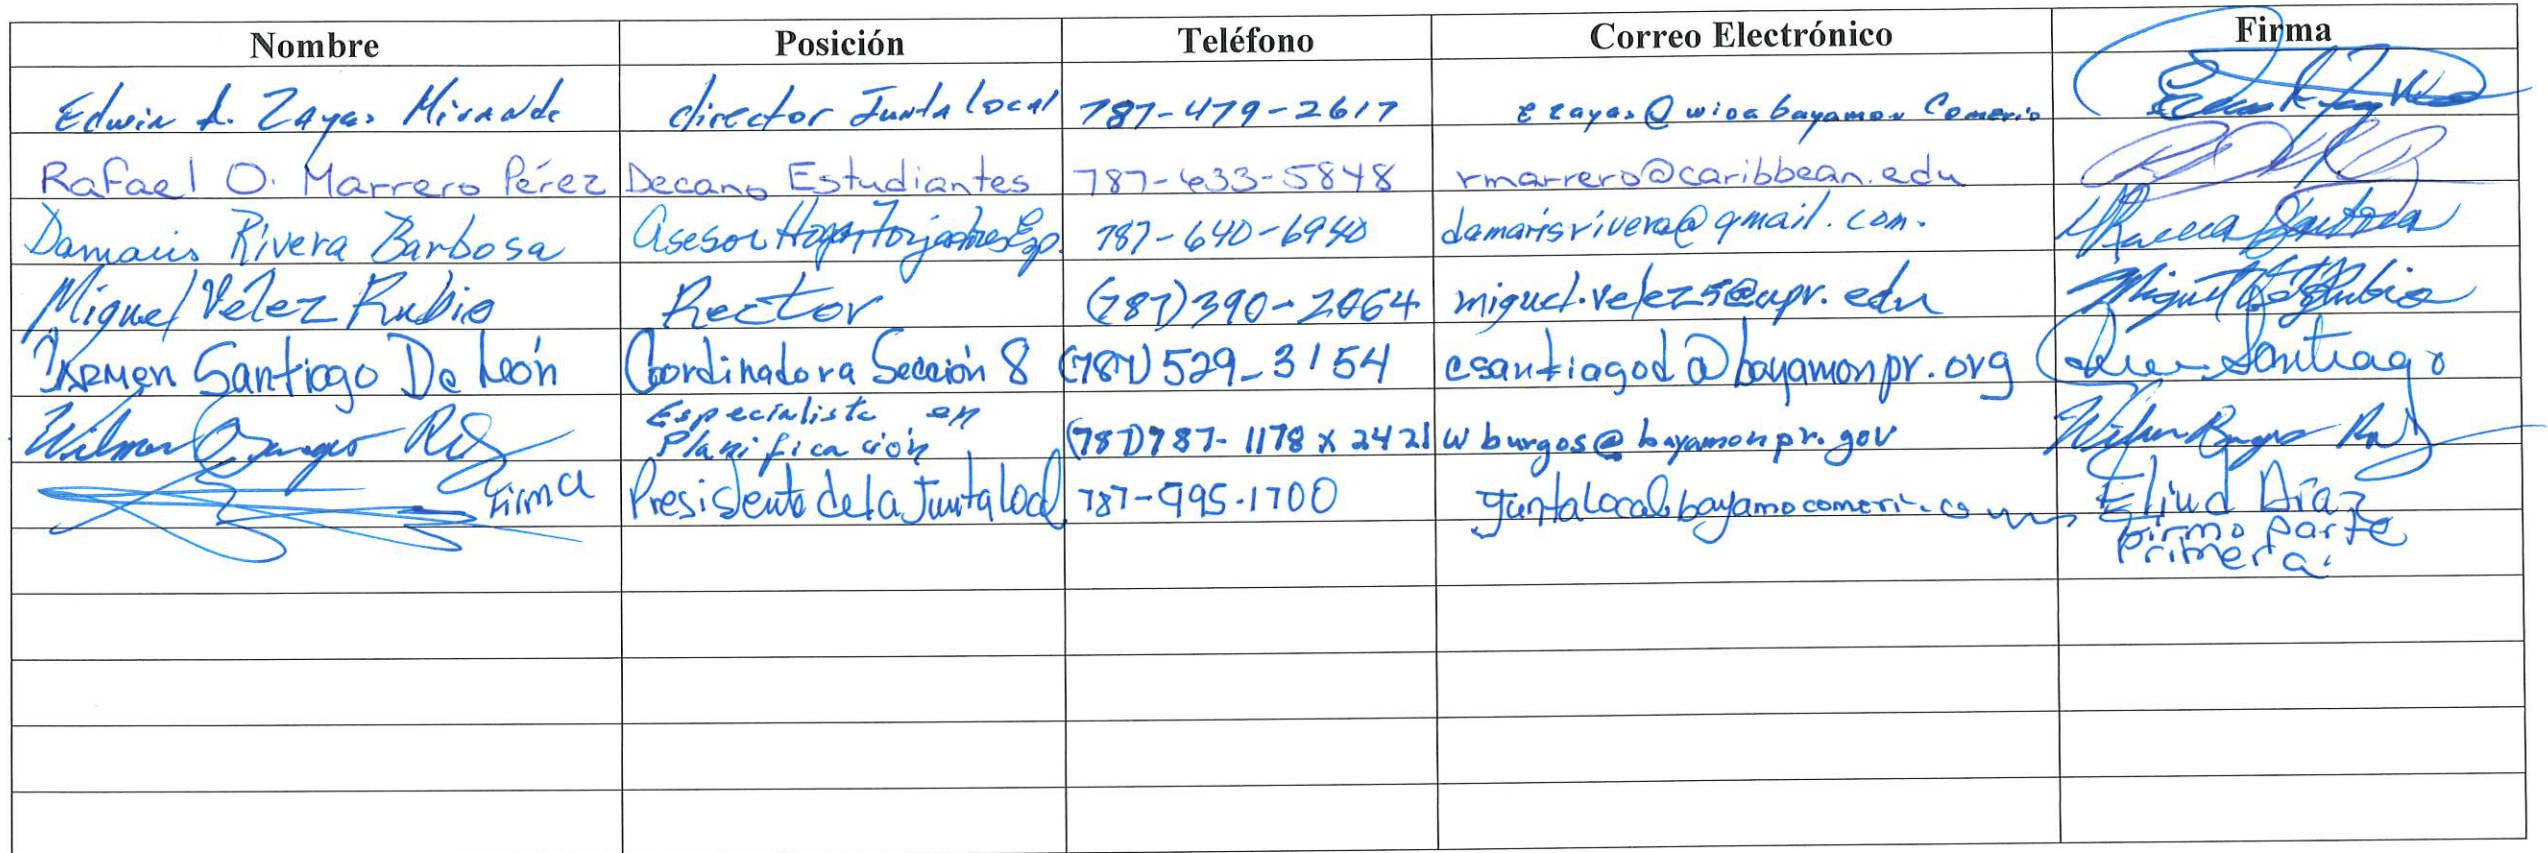 Nombre Posición Teléfono Correo Electrónico Firma
Edwin A. Zayas Miranda director Junta local 787-479-2617 ezayas@wioabayamon Comerio
Rafael O. Marrero Pérez Decano Estudiantes 787-633-5848 rmarrero@caribbean.edu
Damaris Rivera Barbosa Asesor 787-640-6940 damarisrivera@gmail.com. Rivera Barbosa
Miguel Vélez Rubio Rector (787)390-2064 miguel.velez5@upr.edu Miguel Vélez Rubio
Carmen Santiago De León Coordinadora Sección 8 (787)529-3154 csantiagod@bayamonpr.org Santiago
Wilmer Burgos Especialista en
Planificación (787)787-1178 x 2421 wburgos@bayamonpr.gov Burgos
Firma Presidente de la Junta Local 787-995-1700 Eliud Díaz
firmo parte
Primera.